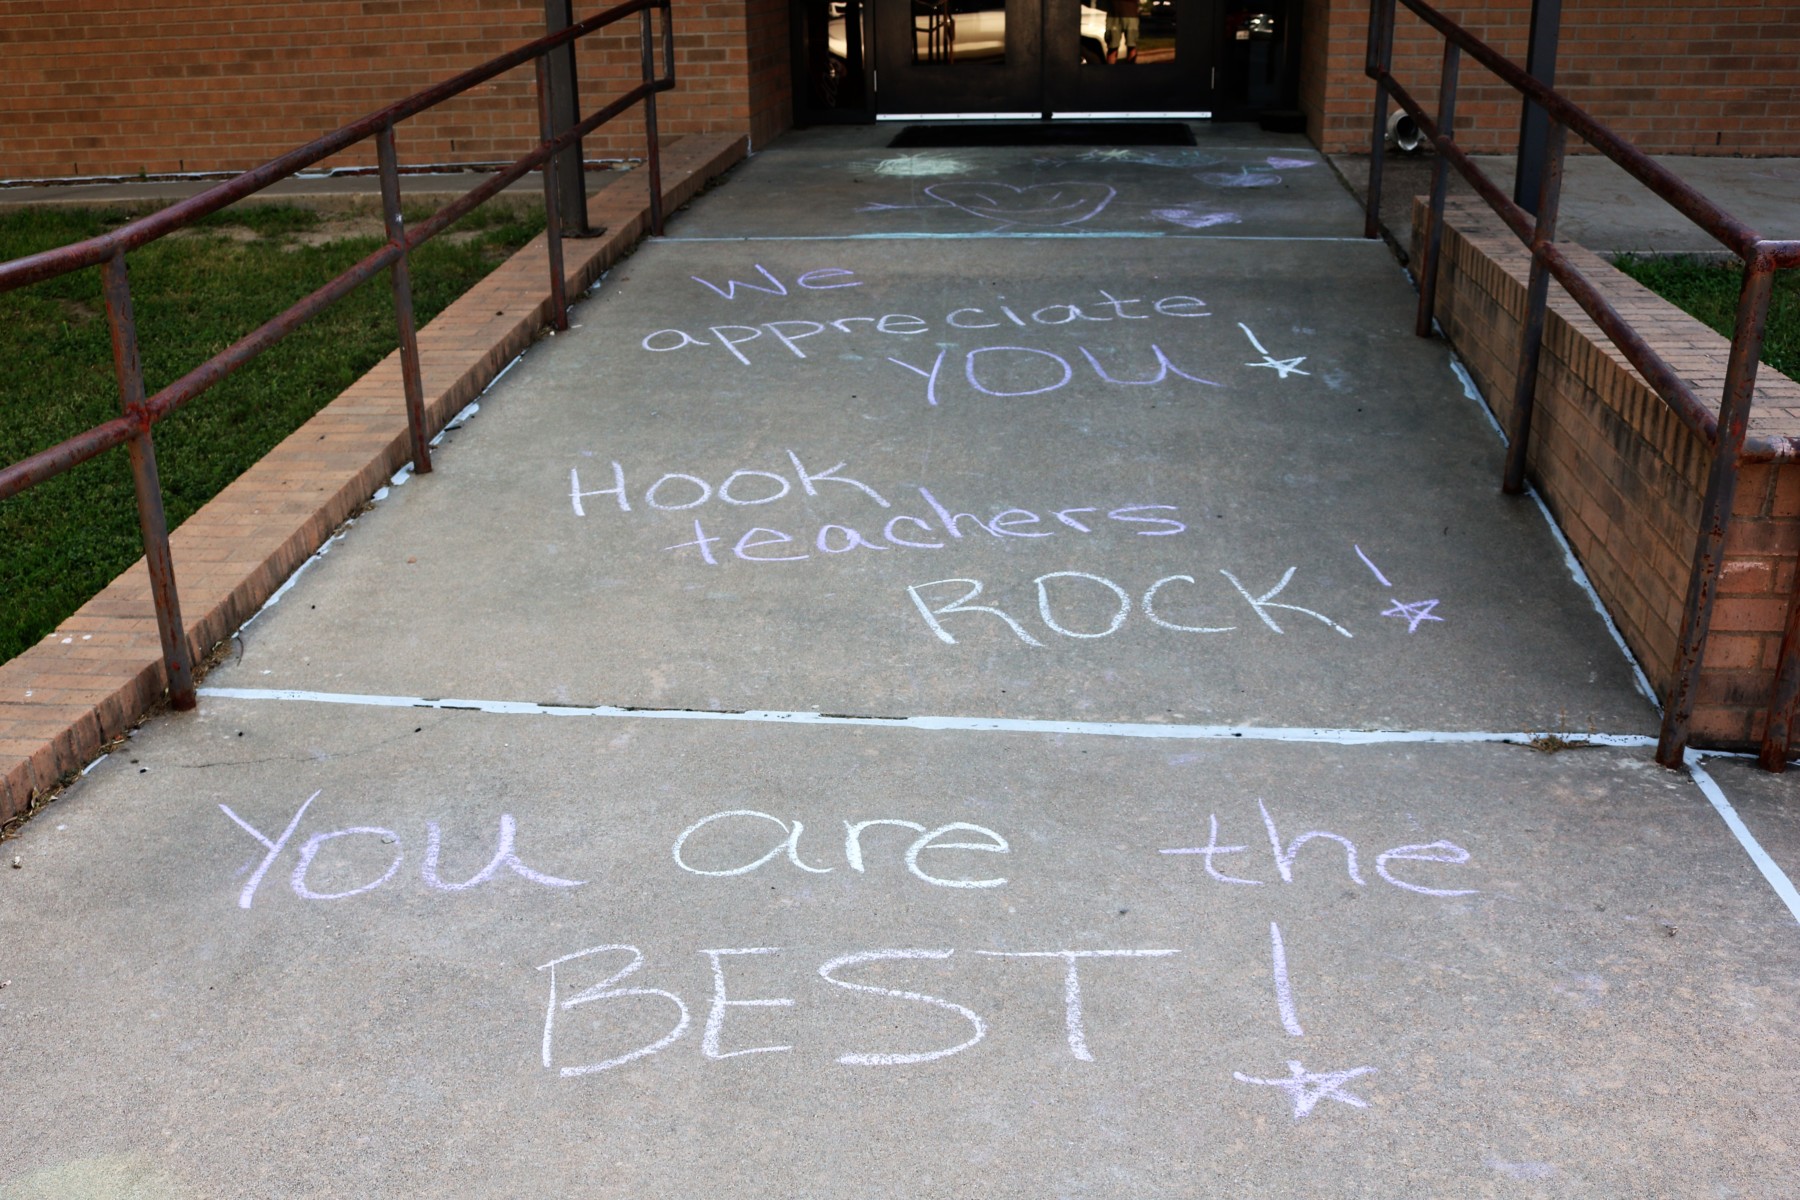 We
appreciate
YOU!
Hook
teachers
ROCK!
You are the
BEST!